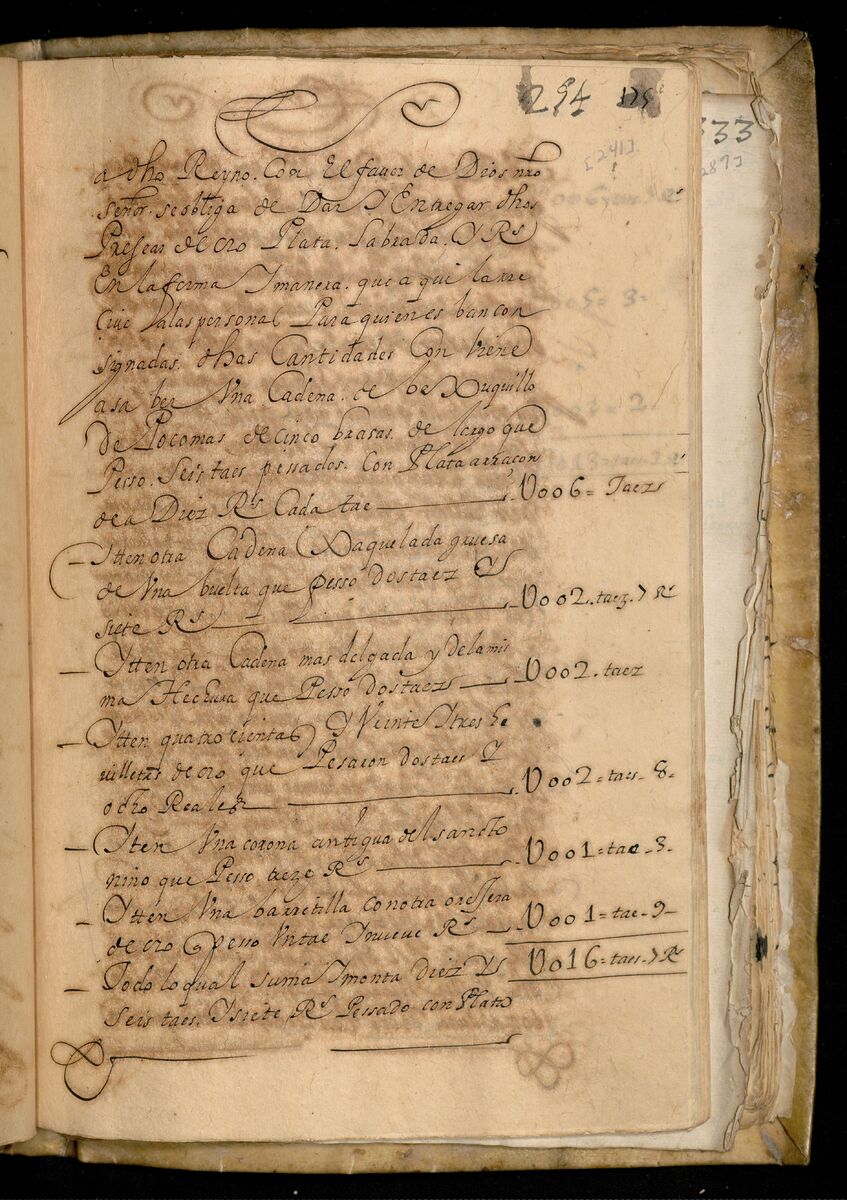 294 325
333
[241]
[287]
a dho Reyno. Con El favor de Dios nro
señor. se obliga de Dar Y Entregar dhas
Preseas de oro Plata. Labrada. Y Rs
En la forma Y manera. que aqui la rre
Cive alas personas Para quien es ban con
signadas. dhas Cantidades Con viene
asaber Una Cadena. de bexuquillo
de Pocomas de cinco brasas. de largo que
Pesso. Seis taes pessados. Con Plata arraçon
de a Diez Rs Cada tae U006= Taezs
Ytten otra Cadena Xaquelada gruesa
de Vna buelta que pesso dos taez Y
siete Rs U002. taez. 7 Rs
Ytten otra Cadena mas delgada y dela mis
ma Hechura que Pesso dos taezs U002. taez
Ytten quatrocientas Y Veinte Y tres he
villetas de oro que Pesaron dos taes Y
ocho Reales U002= taes- 8-
Yten Vna corona antigua del sancto
nino que Pesso treze Rs U001= tae- 3-
Ytten Vna barretilla con otra oressera
de oro pesso Vn tae Y nueve Rs U001= tae- 9-
Todo lo qual suma Y monta diez Y U016= taes- 7 Rs
seis taes. Y siete Rs Pessado con Plata